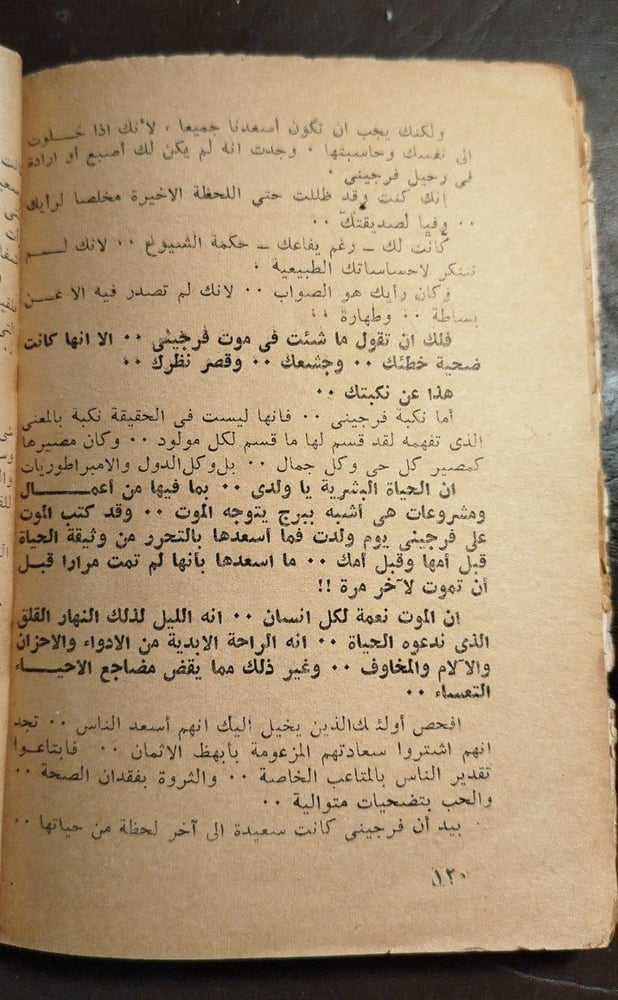 ولكنك يجب ان تكون أسعدنا جميعا ، لأنك اذا خـلـوت
الى نفسك وحاسبتها ٠ وجدت انه لم يكن لك أصبع أو ارادة
فى رحيل فرجينى ٠
انك كنت وقد ظللت حتي اللحظة الاخيرة مخلصا لرأيك
٠٠ وفيا لصديقتك ٠٠
كانت لك ــ رغم يفاعك ــ حكمة الشيوخ ٠٠ لانك لـــم
تتنكر لاحساساتك الطبيعية ٠
وكان رأيك هو الصواب ٠٠ لانك لم تصدر فيه الا عـــن
بساطة ٠٠ وطهارة ٠٠
فلك ان تقول ما شئت فى موت فرجينى ٠٠ الا انها كانت
ضحية خطئك ٠٠ وجشعك ٠٠ وقصر نظرك ٠٠
هذا عن نكبتك ٠٠
أما نكبة فرجينى ٠٠ فانها ليست فى الحقيقة نكبة بالمعنى
الذى تفهمه لقد قسم لها ما قسم لكل مولود ٠٠ وكان مصيرها
كمصير كل حى وكل جمال ٠٠ بل وكل الدول والامبراطوريات
ان الحياة البشرية يا ولدى ٠٠ بما فيها من أعمـــــال
ومشروعات هى أشبه ببرج يتوجه الموت ٠٠ وقد كتب الموت
على فرجينى يوم ولدت فما أسعدها بالتحرر من وثيقة الحياة
قبل أمها وقبل أمك ٠٠ ما اسعدها بأنها لم تمت مرارا قبل
أن تموت لآخر مرة !!
ان الموت نعمة لكل انسان ٠٠ انه الليل لذلك النهار القلق
الذى ندعوه الحياة ٠٠ انه الراحة الابدية من الادواء والاحزان
والآلام والمخاوف ٠٠ وغير ذلك مما يقض مضاجع الاحيـــاء
التعساء ٠٠
افحص أولئك الذين يخيل اليك انهم أسعد الناس ٠٠ تجد
انهم اشتروا سعادتهم المزعومة بأبهظ الاثمان ٠٠ فابتاعـوا
تقدير الناس بالمتاعب الخاصة ٠٠ والثروة بفقدان الصحة ٠٠
والحب بتضحيات متوالية ٠٠
بيد أن فرجينى كانت سعيدة الى آخر لحظة من حياتها ٠٠
١٢٠